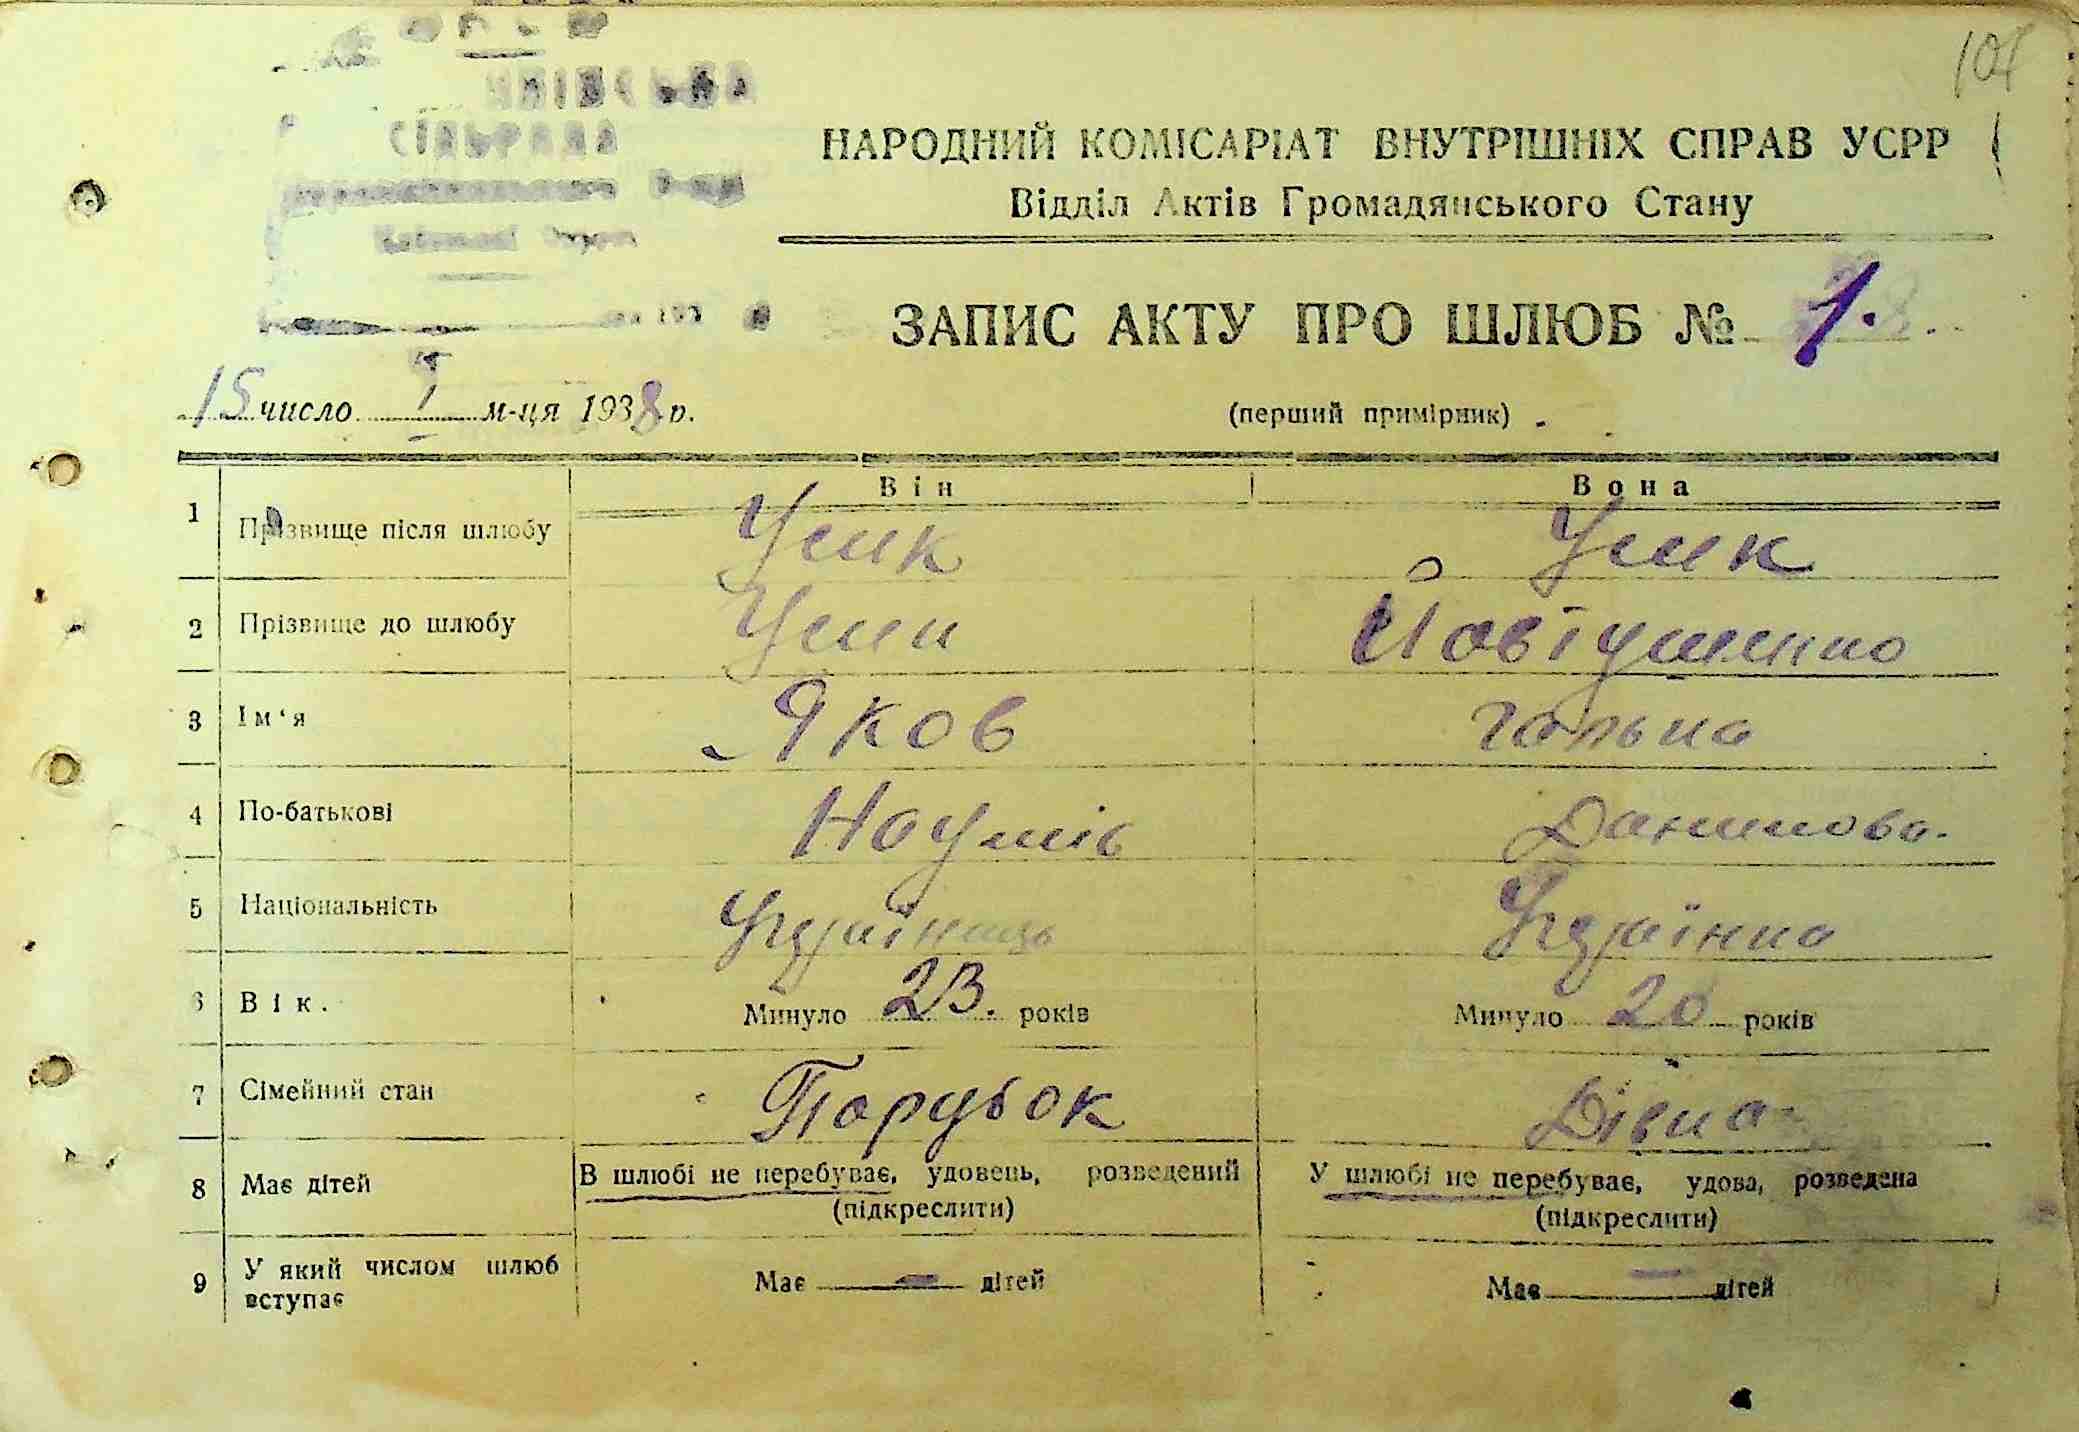 СІЛЬРАДА
НАРОДНИЙ КОМІСАРІАТ ВНУТРІШНІХ СПРАВ УСРР
Відділ Актів Громадянського Стану
ЗАПИС АКТУ ПРО ШЛЮБ № 1.
15 число I м-ця 1938 р.
(перший примірник)
Він Вона
1 Прізвище після шлюбу Усик Усик
2 Прізвище до шлюбу Усик Йовтушенко
3 Ім‘я Яков Галька
4 По-батькові Наумів Данилова.
5 Національність Українець Українка
6 Вік. Минуло 23. років Минуло 20 років
7 Сімейний стан Парубок Дівка
8 Має дітей В шлюбі не перебуває, удовець, розведений У шлюбі не перебуває, удова, розведена
(підкреслити) (підкреслити)
9 У який числом шлюб
вступає Має — дітей Має — дітей